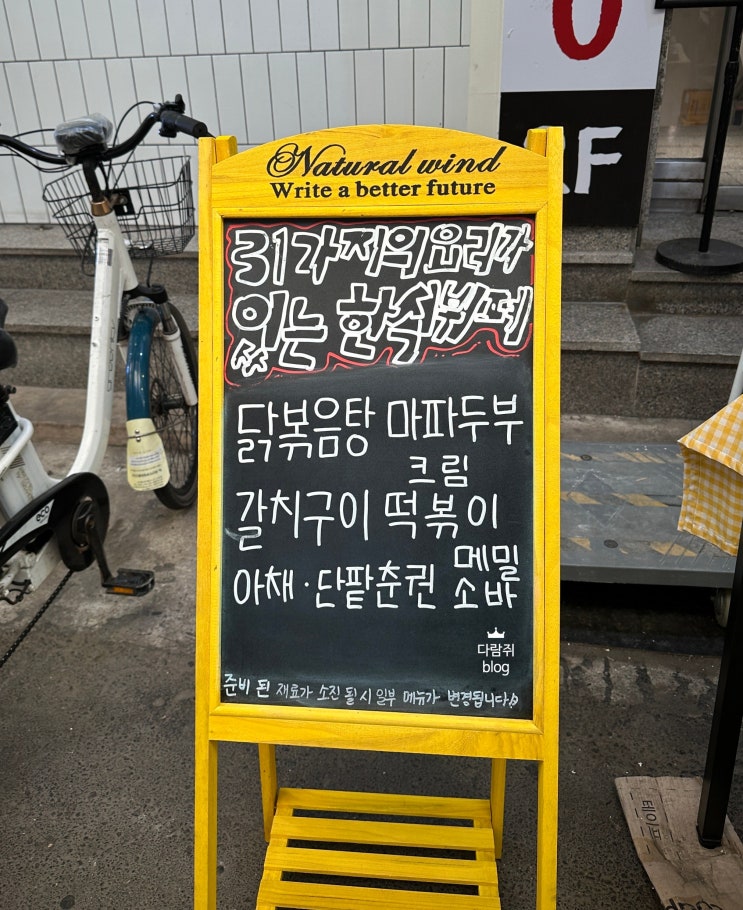 Natural wind
Write a better future
31가지의 요리가
있는 한식뷔페
닭볶음탕 마파두부
크림
갈치구이 떡볶이
메밀
야채·단팥춘권 소바
다람쥐
blog
준비 된 재료가 소진 될 시 일부 메뉴가 변경됩니다
O
RF
테이프